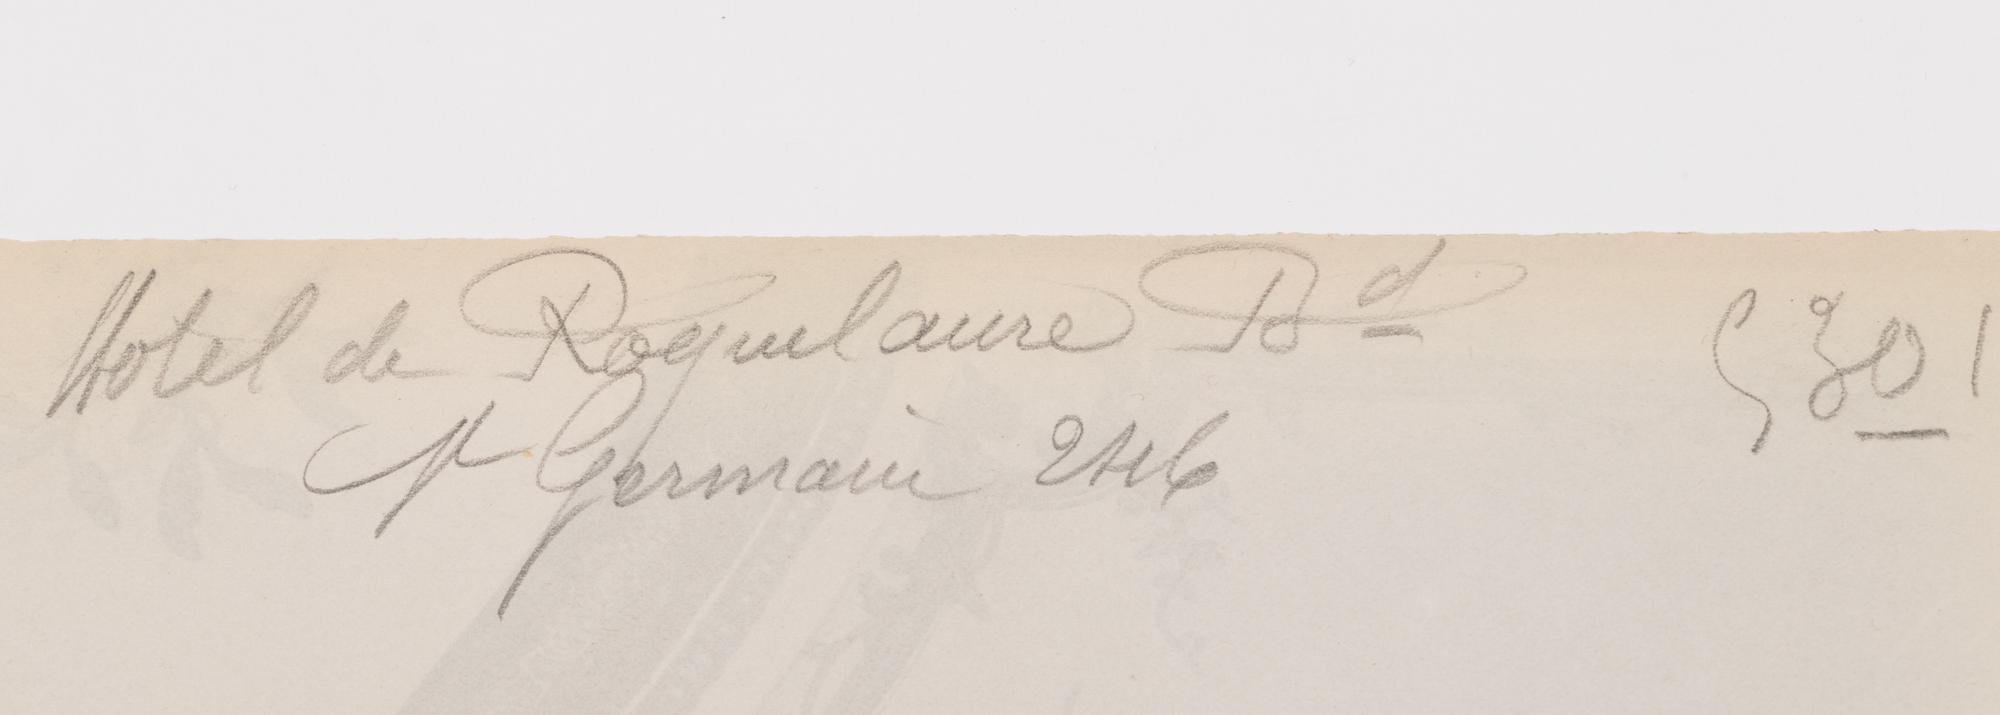 Hotel de Roquelaure Bd
St Germain 246